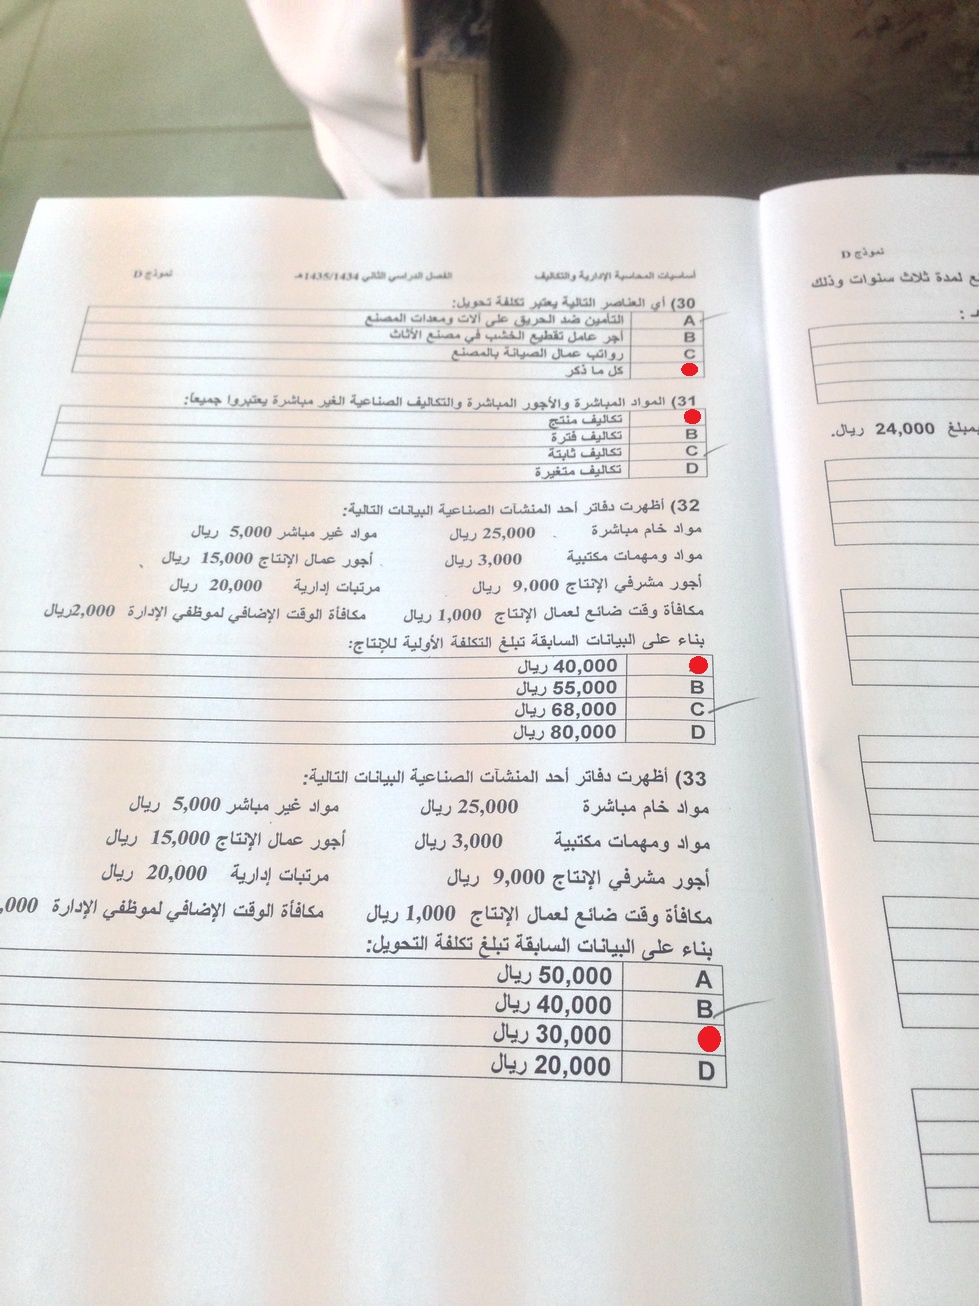 أساسيات المحاسبة الإدارية والتكاليف الفصل الدراسي الثاني 1435/1434هـ نموذج D
30) أي العناصر التالية يعتبر تكلفة تحويل:
A التأمين ضد الحريق على آلات ومعدات المصنع
B أجر عامل تقطيع الخشب في مصنع الأثاث
C رواتب عمال الصيانة بالمصنع
كل ما ذكر
31) المواد المباشرة والأجور المباشرة والتكاليف الصناعية الغير مباشرة يعتبروا جميعاً:
تكاليف منتج
B تكاليف فترة
C تكاليف ثابتة
D تكاليف متغيرة
32) أظهرت دفاتر أحد المنشآت الصناعية البيانات التالية:
مواد خام مباشرة 25,000 ريال مواد غير مباشر 5,000 ريال
مواد ومهمات مكتبية 3,000 ريال أجور عمال الإنتاج 15,000 ريال
أجور مشرفي الإنتاج 9,000 ريال مرتبات إدارية 20,000 ريال
مكافأة وقت ضائع لعمال الإنتاج 1,000 ريال مكافأة الوقت الإضافي لموظفي الإدارة 2,000ريال
بناء على البيانات السابقة تبلغ التكلفة الأولية للإنتاج:
40,000 ريال
B 55,000 ريال
C 68,000 ريال
D 80,000 ريال
33) أظهرت دفاتر أحد المنشآت الصناعية البيانات التالية:
مواد خام مباشرة 25,000 ريال مواد غير مباشر 5,000 ريال
مواد ومهمات مكتبية 3,000 ريال أجور عمال الإنتاج 15,000 ريال
أجور مشرفي الإنتاج 9,000 ريال مرتبات إدارية 20,000 ريال
مكافأة وقت ضائع لعمال الإنتاج 1,000 ريال مكافأة الوقت الإضافي لموظفي الإدارة ,000
بناء على البيانات السابقة تبلغ تكلفة التحويل:
A 50,000 ريال
B 40,000 ريال
30,000 ريال
D 20,000 ريال
نموذج D
لمدة ثلاث سنوات وذلك
بمبلغ 24,000 ريال.